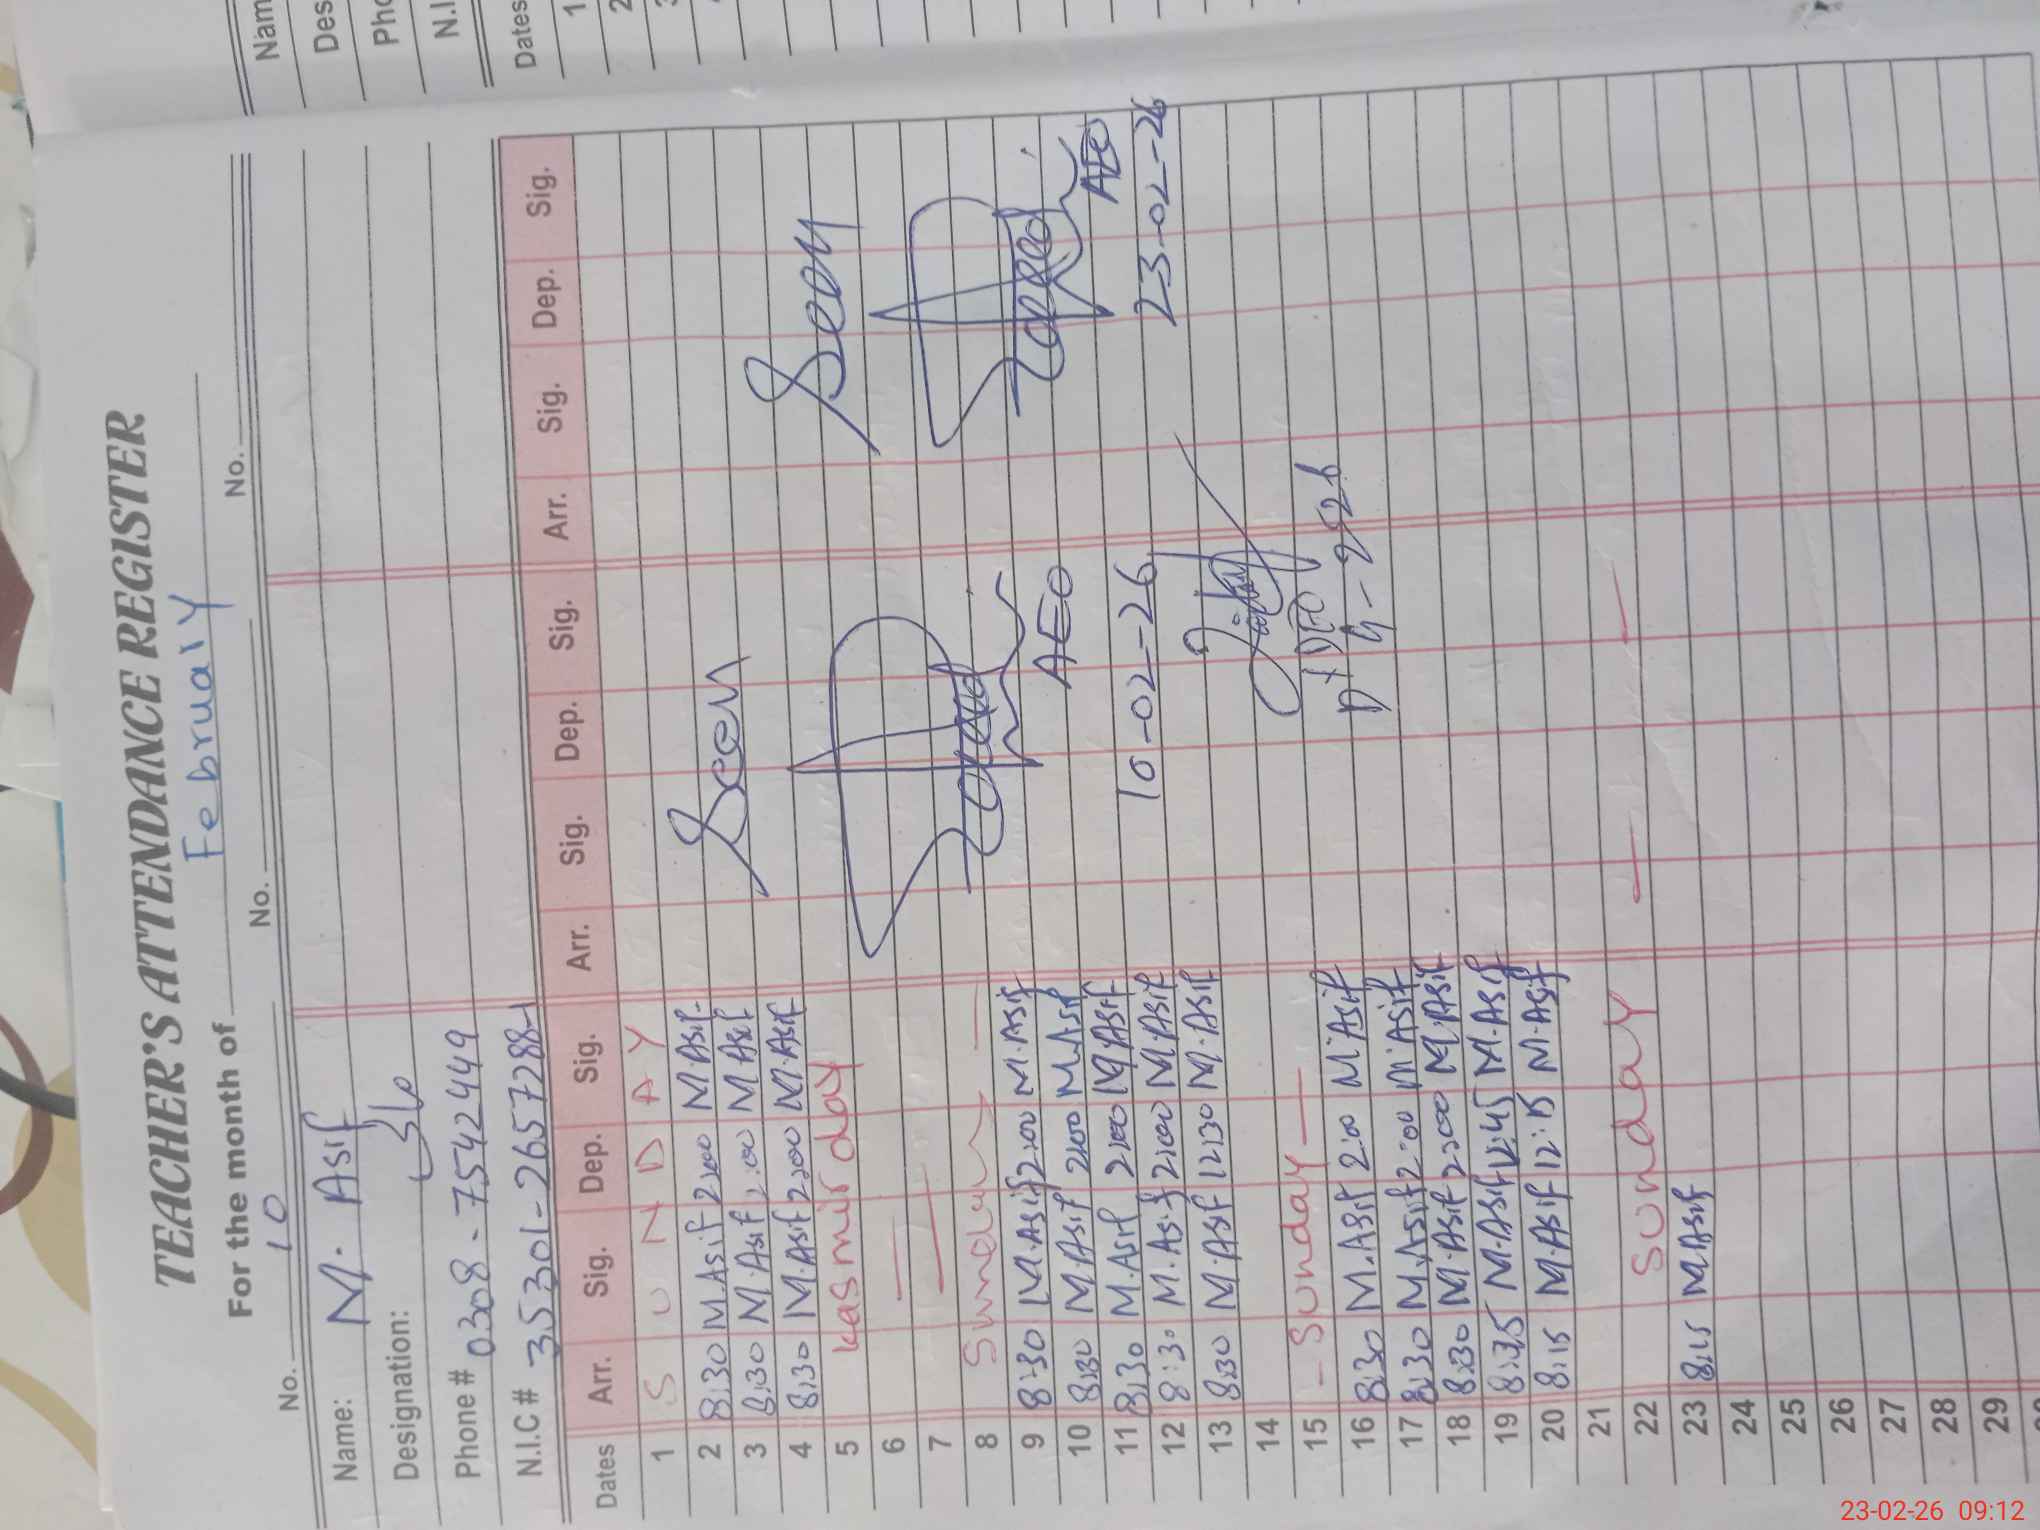 TEACHER'S ATTENDANCE REGISTER
For the month of February
No. 10 No. No.
Name: M. Asif
Designation:
Phone # 0308-7542449
N.I.C # 35301-2657288-1
Dates Arr. Sig. Dep. Sig. Arr. Sig. Dep. Sig. Arr. Sig. Dep. Sig.
1 SUNDAY
2 8:30 M.Asif 2:00 M.Asif
3 8:30 M.Asif 2:00 M.Asif
4 8:30 M.Asif 2:00 M.Asif
5 kasmir day
6
7
8 Sunday
9 8:30 M.Asif 2:00 M.Asif
10 8:30 M.Asif 2:00 M.Asif
11 8:30 M.Asif 2:00 M.Asif
12 8:30 M.Asif 2:00 M.Asif
13 8:30 M.Asif 12:30 M.Asif
14
15 - Sunday -
16 8:30 M.Asif 2:00 M.Asif
17 8:30 M.Asif 2:00 M.Asif
18 8:30 M.Asif 2:00 M.Asif
19 M.Asif 12:45 M.Asif
20 8:15 M.Asif 12:15 M.Asif
21
22 Sunday
23 8:15 M.Asif
24
25
26
27
28
29
Seen
AEO
10-02-26
Seen
AEO
23-02-26
Nam
Des
Pho
N.I
Dates
1
2
23-02-26 09:12